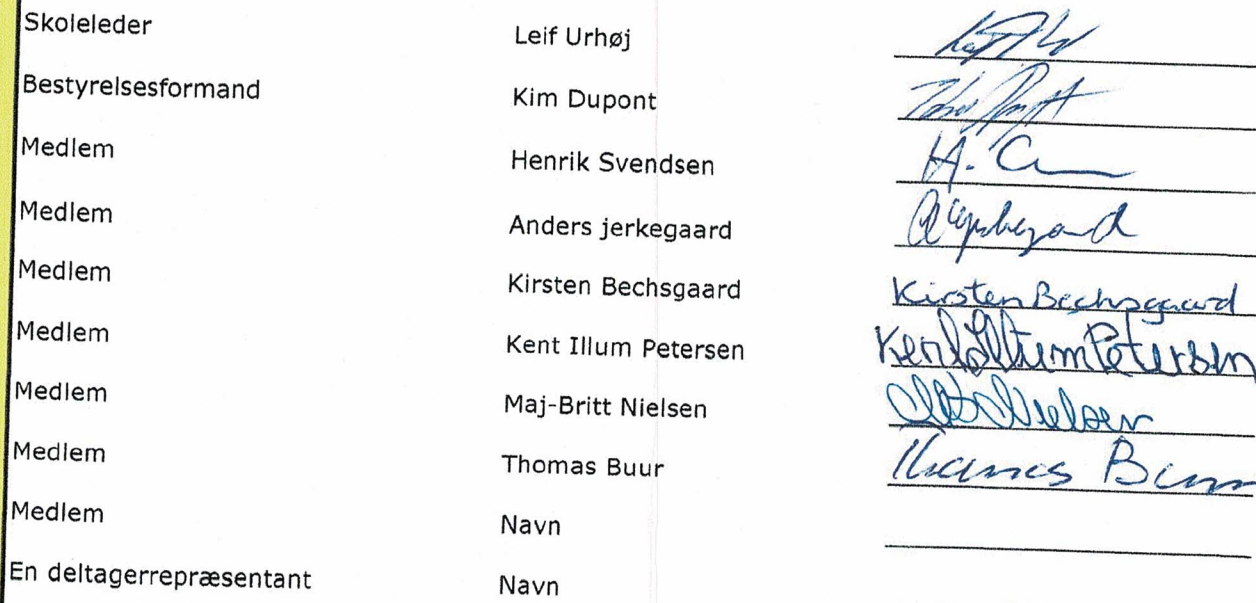 Skoleleder Leif Urhøj
Bestyrelsesformand Kim Dupont
Medlem Henrik Svendsen H.
Medlem Anders jerkegaard
Medlem Kirsten Bechsgaard Kirsten Bechsgaard
Medlem Kent Illum Petersen Kent Illum Petersen
Medlem Maj-Britt Nielsen Nielsen
Medlem Thomas Buur Thomas Buur
Medlem Navn
En deltagerrepræsentant Navn